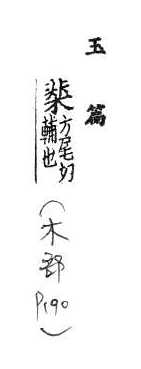 玉篇
棐方尾切輔也(木部P190)